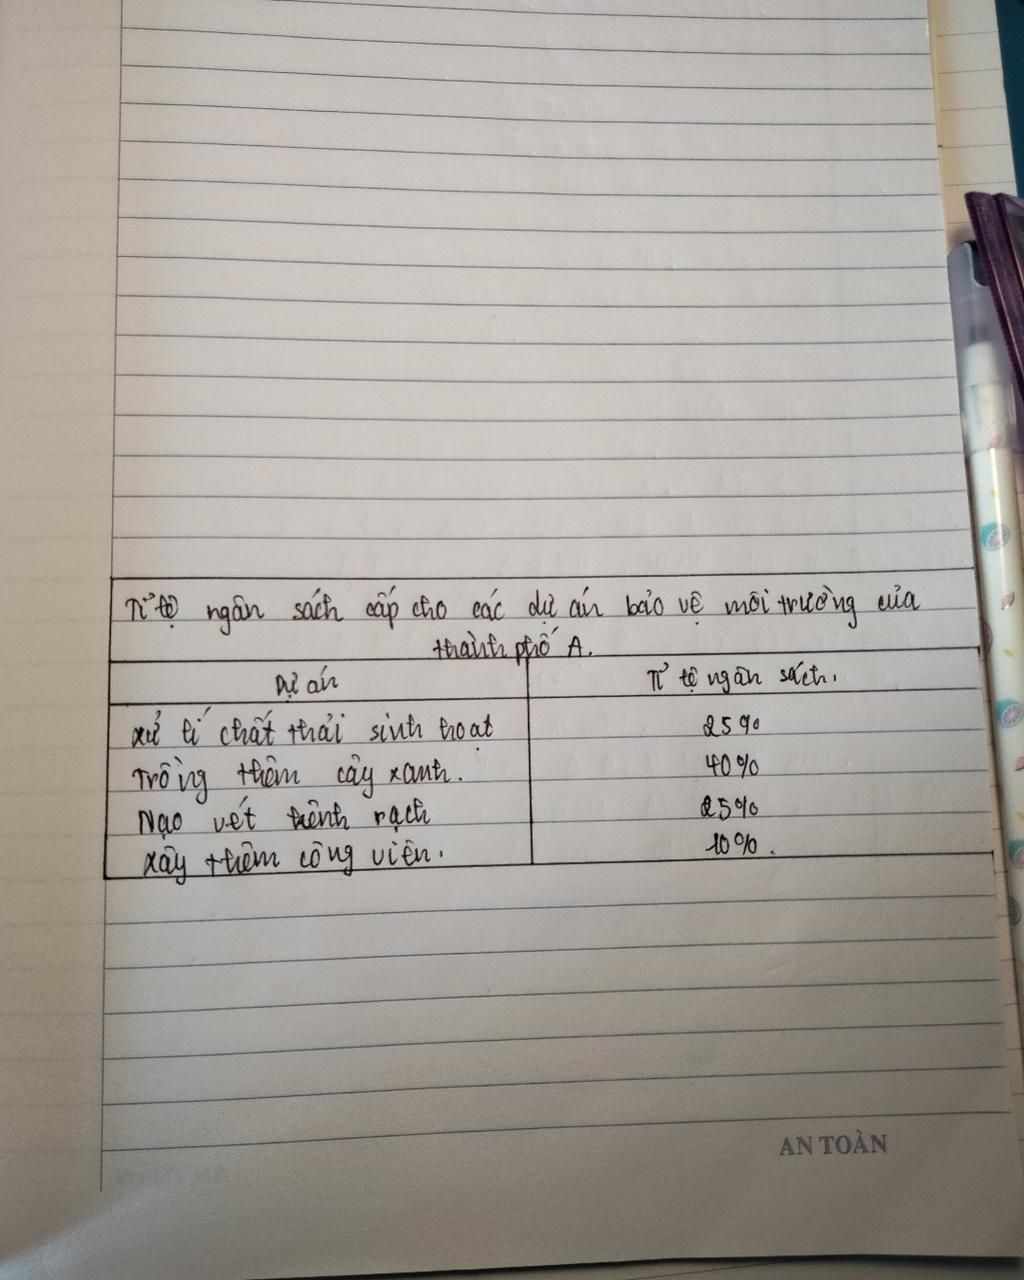 Tỉ lệ ngân sách cấp cho các dự án bảo vệ môi trường của
thành phố A.
Dự án Tỉ lệ ngân sách.
Xử lí chất thải sinh hoạt 25%
Trồng thêm cây xanh. 40%
Nạo vét kênh rạch 25%
Xây thêm công viên. 10%.
AN TOÀN